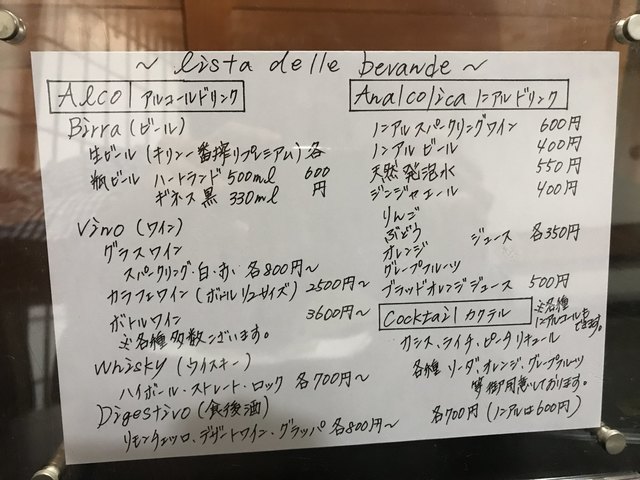 ～ lista delle bevande ～
Alcol アルコールドリンク
Birra (ビール)
生ビール (キリン一番搾りプレミアム) 各
瓶ビール ハートランド 500ml 600
ギネス 黒 330ml 円
Vino (ワイン)
グラスワイン
スパークリング・白・赤 各800円～
カラフェワイン (ボトル1/2サイズ) 2500円～
ボトルワイン 3600円～
※各種多数ございます。
Whisky (ウイスキー)
ハイボール・ストレート・ロック 各700円～
Digestivo (食後酒)
リモンチェッロ、デザートワイン・グラッパ 各800円～
Analcolica ノンアルドリンク
ノンアルスパークリングワイン 600円
ノンアルビール 400円
天然発泡水 550円
ジンジャエール 400円
りんご
ぶどう
オレンジ ジュース 各350円
グレープフルーツ
ブラッドオレンジジュース 500円
Cocktail カクテル ※各種ノンアルコールもできます。
カシス、ライチ、ピーチリキュール
各種 ソーダ、オレンジ、グレープフルーツ
等御用意しております。
各700円 (ノンアルは600円)